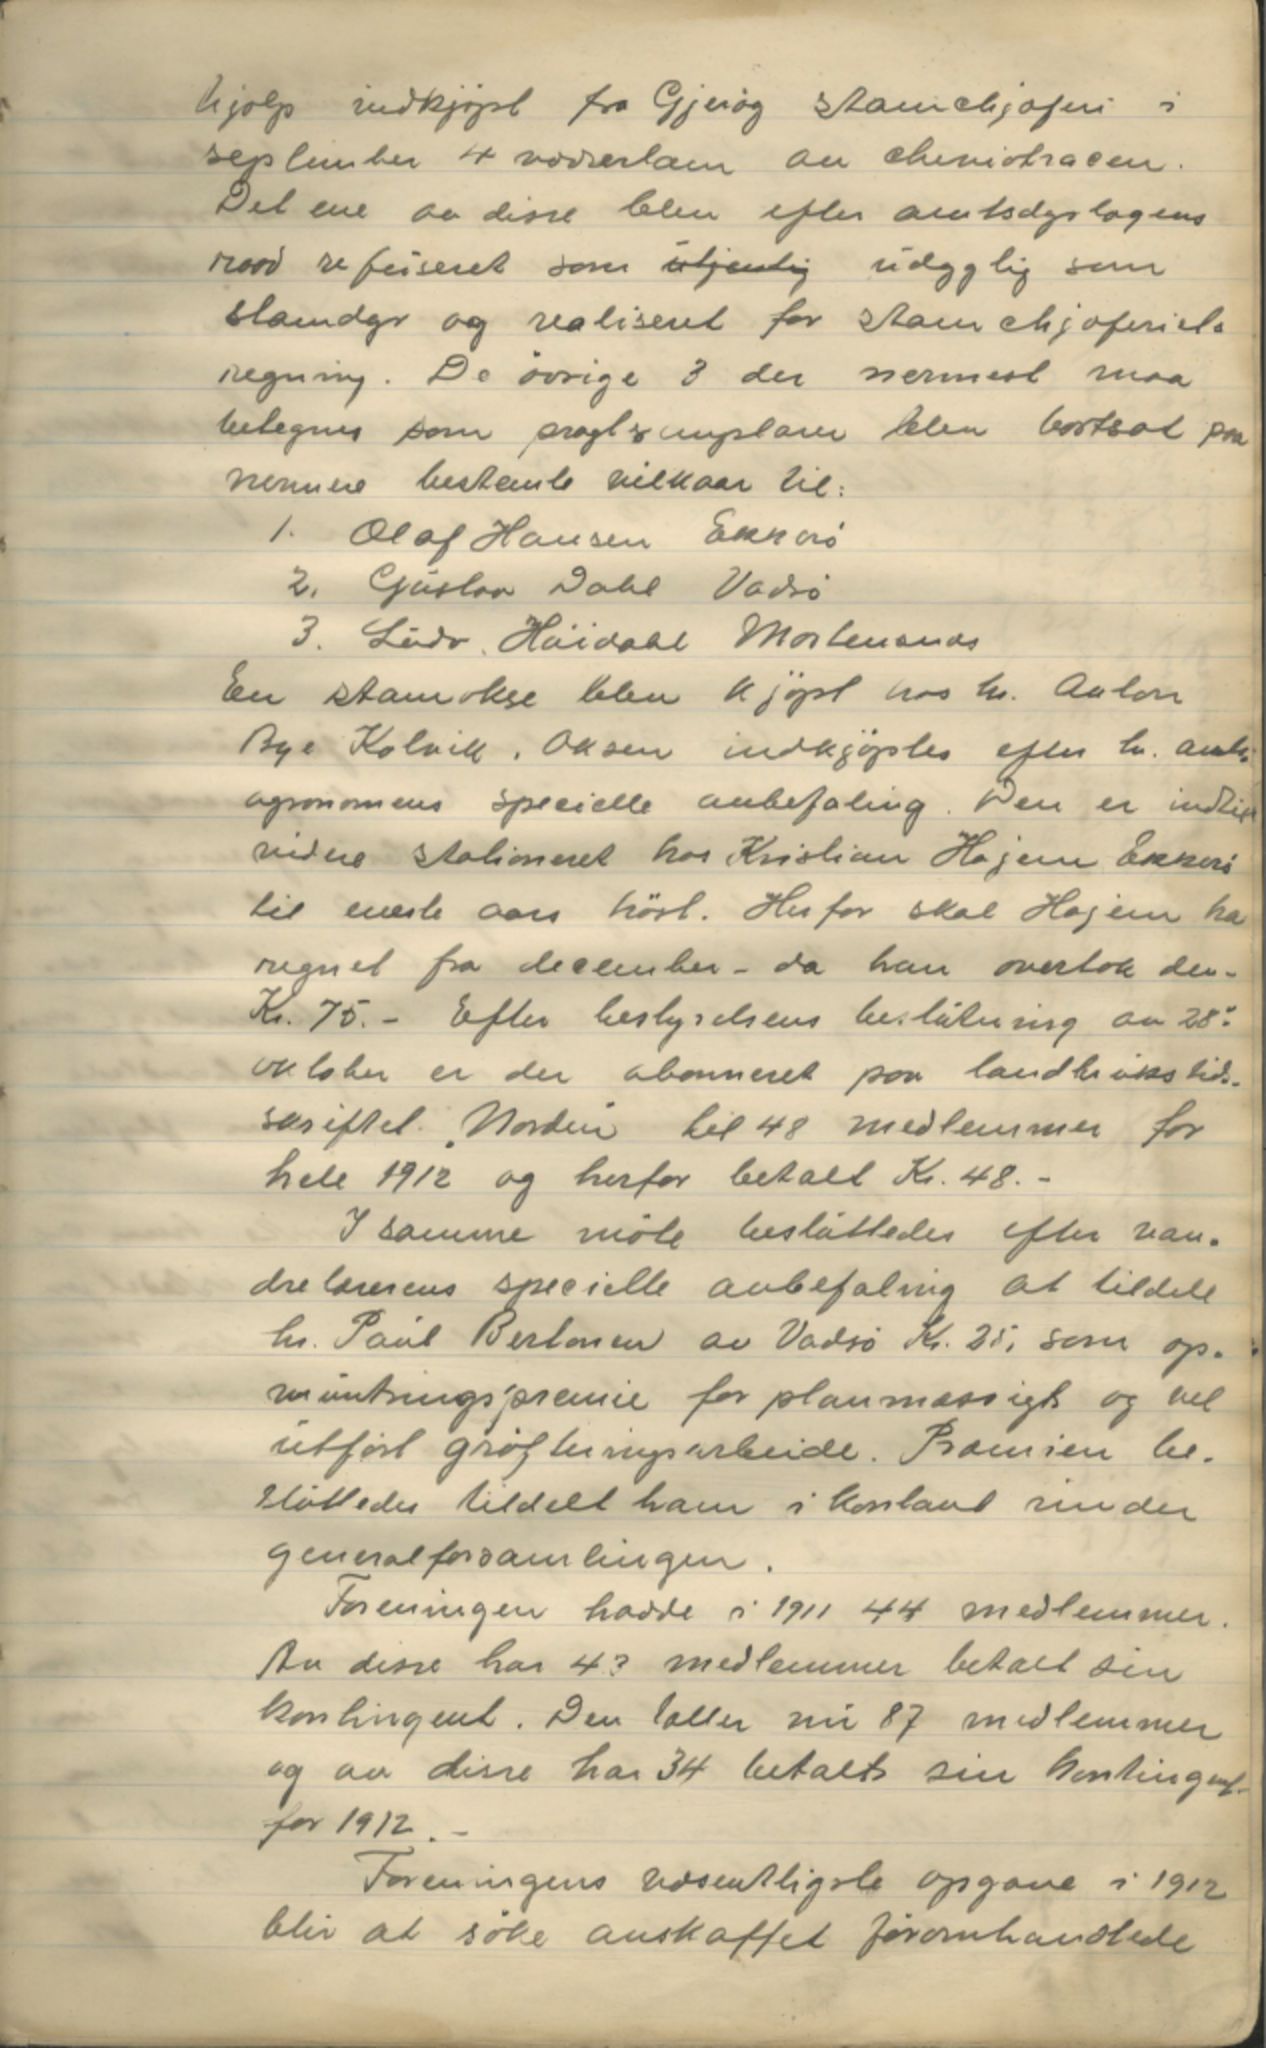 hjælp indkjöpt fra Gjeróg stamchjæferi i
september 4 væderlam av cheviotracen.
Det ene av disse blev efter amtsdyrlægens
raad refüseret som ütjenlig üdyglig som
stamdyr og realiseret for stamchjæferiets
regning. De övrige 3 der nærmest maa
betegnes som pragteksemplarer blev bortsat paa
nærmere bestemte vilkaar til:
1. Olaf Hansen Ekkerö
2. Güstav Dahl Vadsö
3. Lüdv. Höidahl Mortensnæs
En stamokse blev kjöpt hos hr. Anton
Bye Kolvik. Oksen indkjöptes efter hr. amts-
agronomens specielle anbefaling. Den er indtil
videre stationeret hos Kristian Hagem Ekkerö
til næste aars höst. Herfor skal Hagem ha
regnet fra december - da han overtok den -
Kr. 75.- Efter bestyrelsens beslütning av 28de
oktober er der abonneret paa landbrükstids-
skriftet "Norden" til 48 medlemmer for
hele 1912 og herfor betalt Kr. 48.-
I samme möte beslüttedes efter van-
drelærerens specielle anbefaling at tildele
hr. Paül Bertonen av Vadsö Kr. 25, som op-
müntringspremie for planmæssigt og vel
ütfört gröfteringsarbeide. Præmien be-
slüttedes tildelt ham i kontant ünder
generalforsamlingen.
Foreningen hadde i 1911 44 medlemmer.
Av disse har 43 medlemmer betalt sin
kontingent. Den tæller nü 87 medlemmer
og av disse har 34 betalt sin kontingent
for 1912.-
Foreningens væsentligste opgave i 1912
blir at söke anskaffet förornhandlede